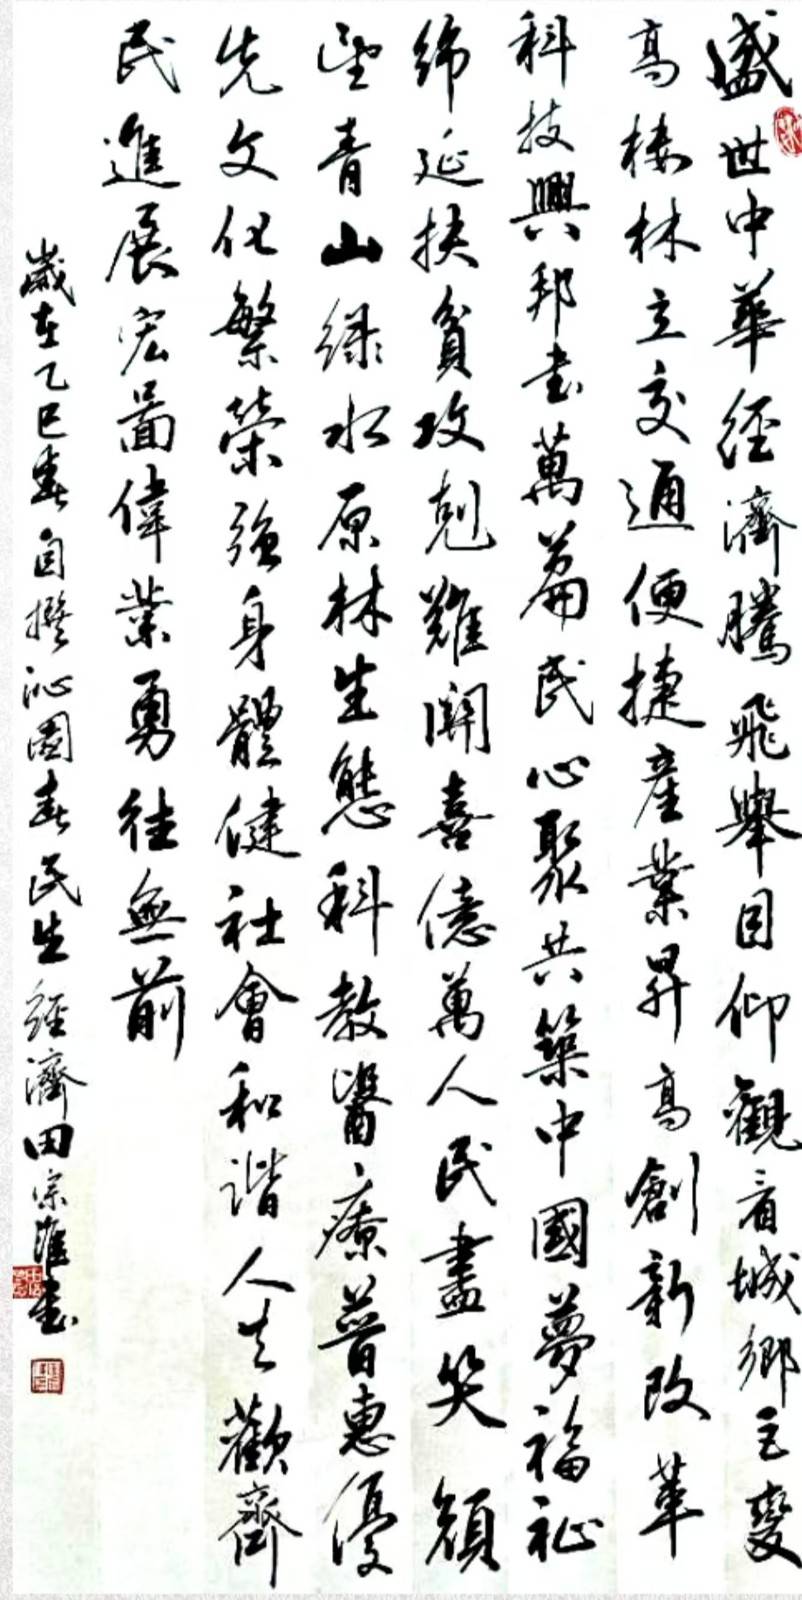 盛世中華經濟騰飛舉目仰觀看城鄉巨變
高楼林立交通便捷産業昇高創新改革
科技興邦書萬篇民心聚共築中國夢福祉
绵延扶貧攻剋難關喜億萬人民盡笑顔
望青山绿水原林生態科教醫療普惠優
先文化繁榮强身體健社會和谐人人歡齊
民進展宏圖偉業勇往無前
歲在乙巳春自撰沁園春民生經濟田宗淮書